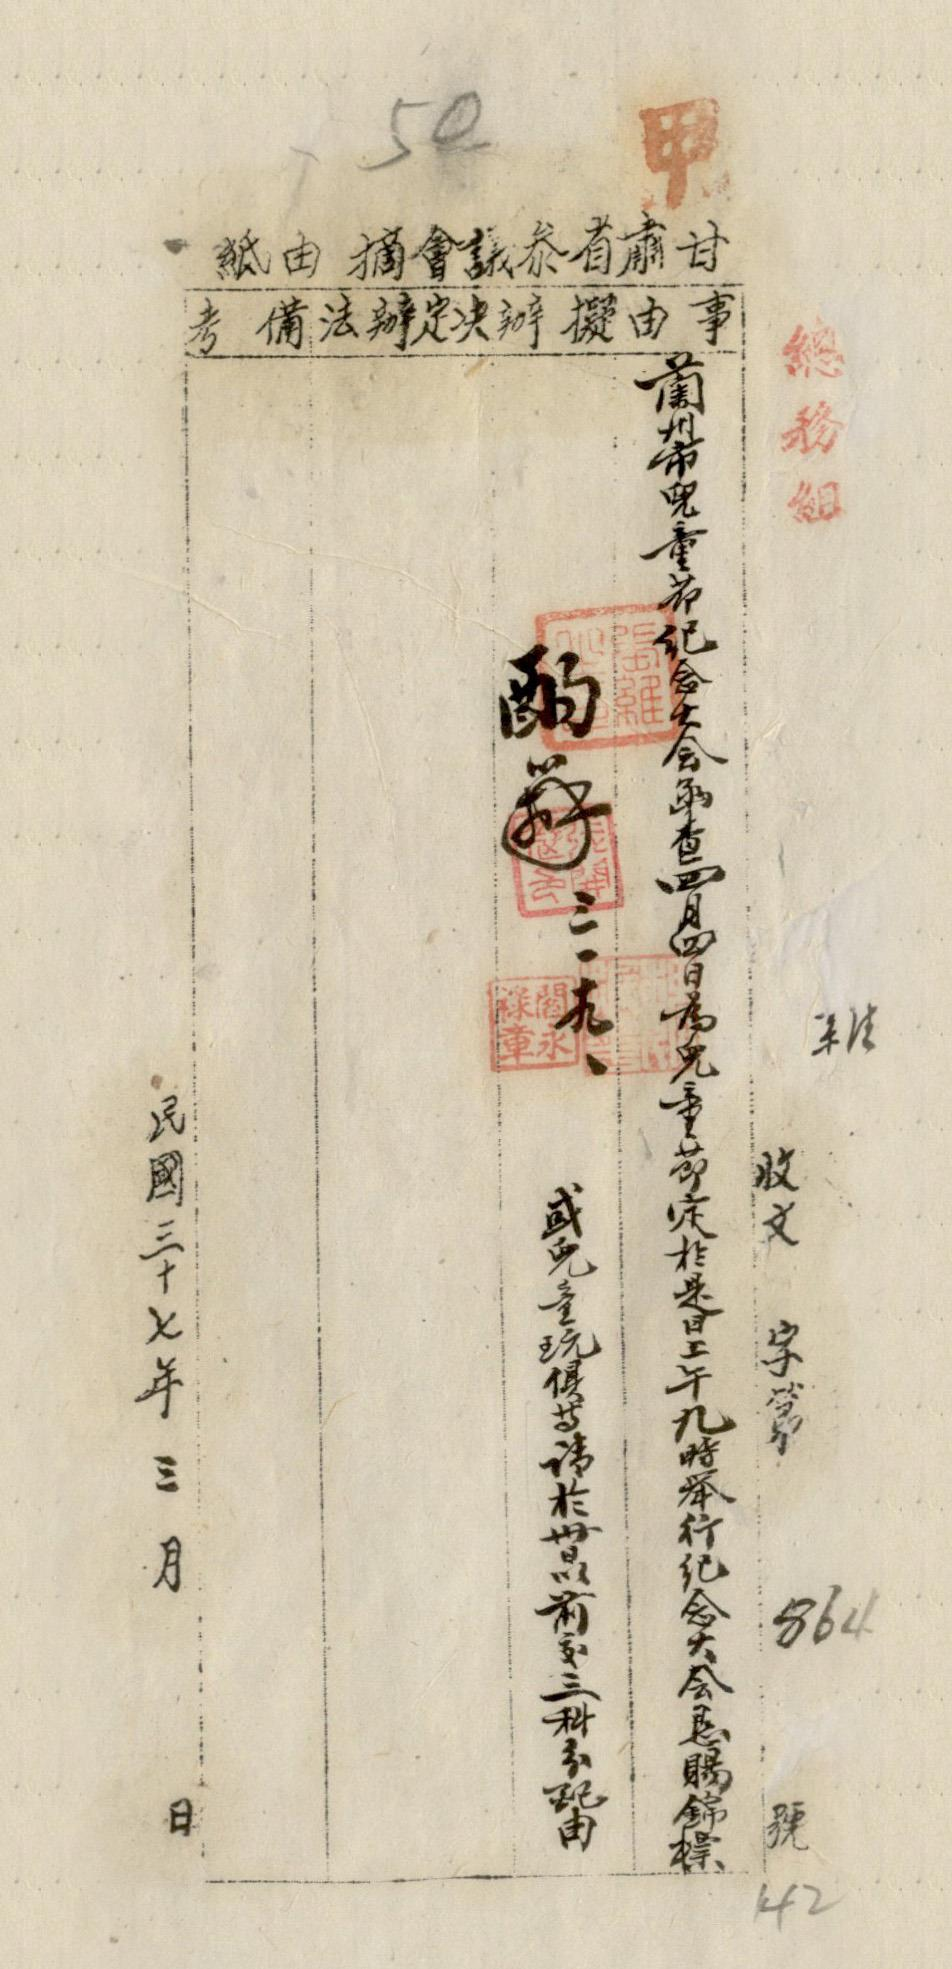 50
甲
甘肅省參議會摘由紙
事由 擬辦 決定辦法 備考
總務組
雜
收文 字第 864 號
42
蘭州市兒童節紀念大会函查四月四日為兒童節定於是日上午九時举行紀念大会恳賜錦標
或兒童玩俱等請於卅日以前交三科分配由
酌辦
三一九、
閻永祿章
民國三十七年 三月 日